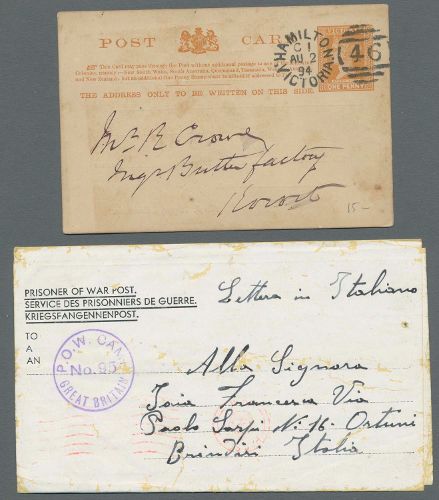 POST CARD
THE ADDRESS ONLY TO BE WRITTEN ON THIS SIDE.
HAMILTON
C1
AU 2
94
VICTORIA
46
ONE PENNY
Mr R Crowe
Butter factory
15-
PRISONER OF WAR POST.
SERVICE DES PRISONNIERS DE GUERRE.
KRIEGSFANGENNENPOST.
Lettera in Italiano
TO
A
AN
P.O.W. CAMP
No. 95
GREAT BRITAIN
Alla Signora
Francesca Via
Paolo Sarpi N. 16. Ortuni
Brindisi Italia